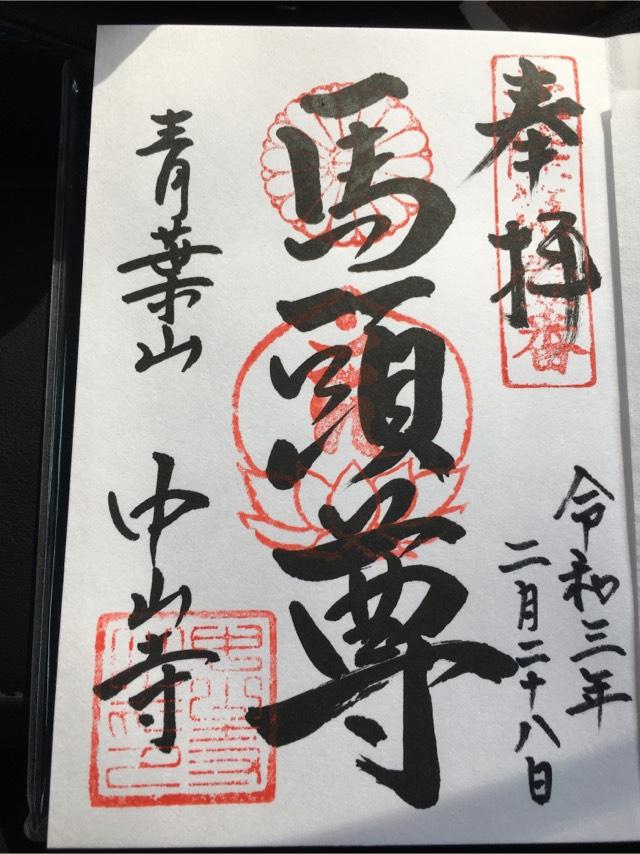 奉拝
令和三年
二月二十八日
馬頭尊
青葉山
中山寺